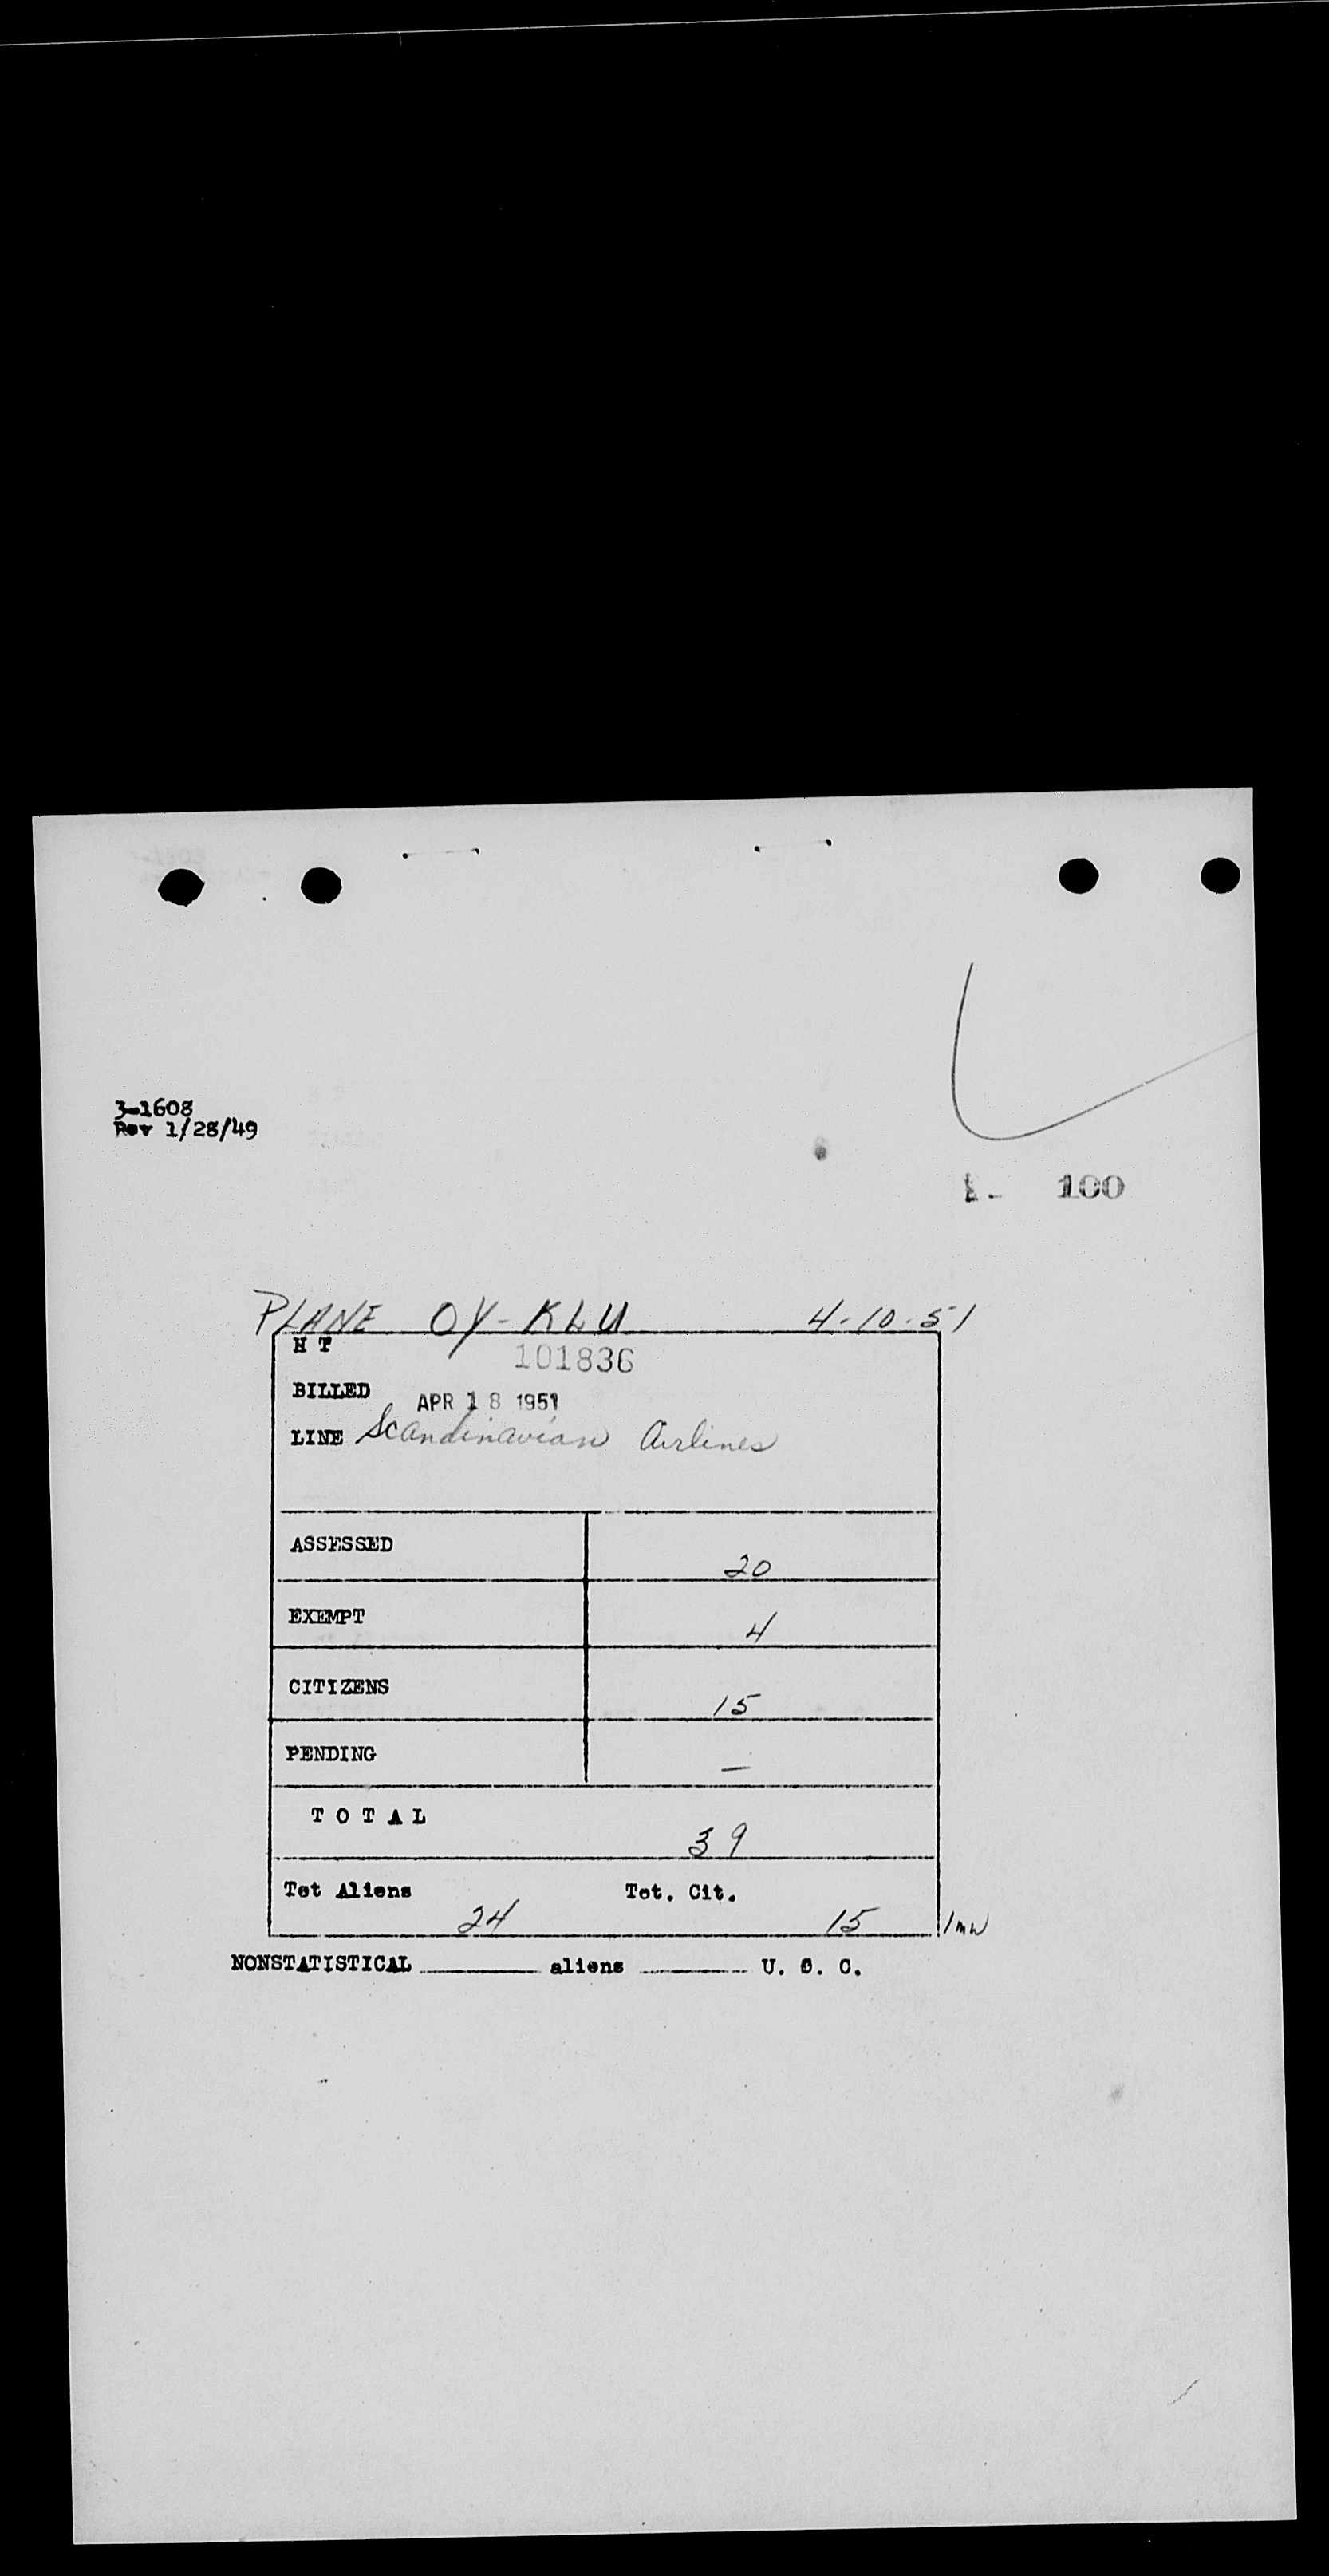 3-1608
Rev 1/28/49
100
PLANE OY-KLU 4-10-51
H T 101836
BILLED APR 18 1951
LINE Scandinavian Airlines
ASSESSED 20
EXEMPT 4
CITIZENS 15
PENDING —
T O T A L 39
Tot Aliens 24 Tot. Cit. 15
NONSTATISTICAL ______ aliens ______ U. S. C.